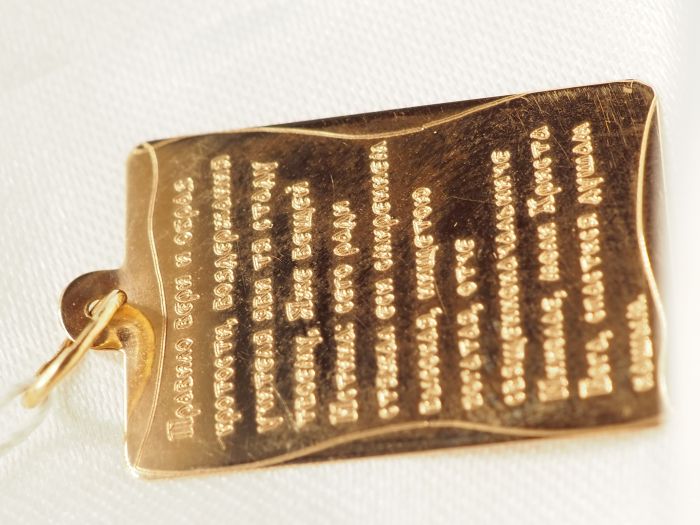 Правило веры и образ
кротости, воздержания
учителя яви тя стаду
твоему, Яже вещей
Истина: сего ради
стяжал еси смирением
высокая, нищетою
богатая, отче
священноначальниче
Николае, моли Христа
Бога, спастися душам
нашим.